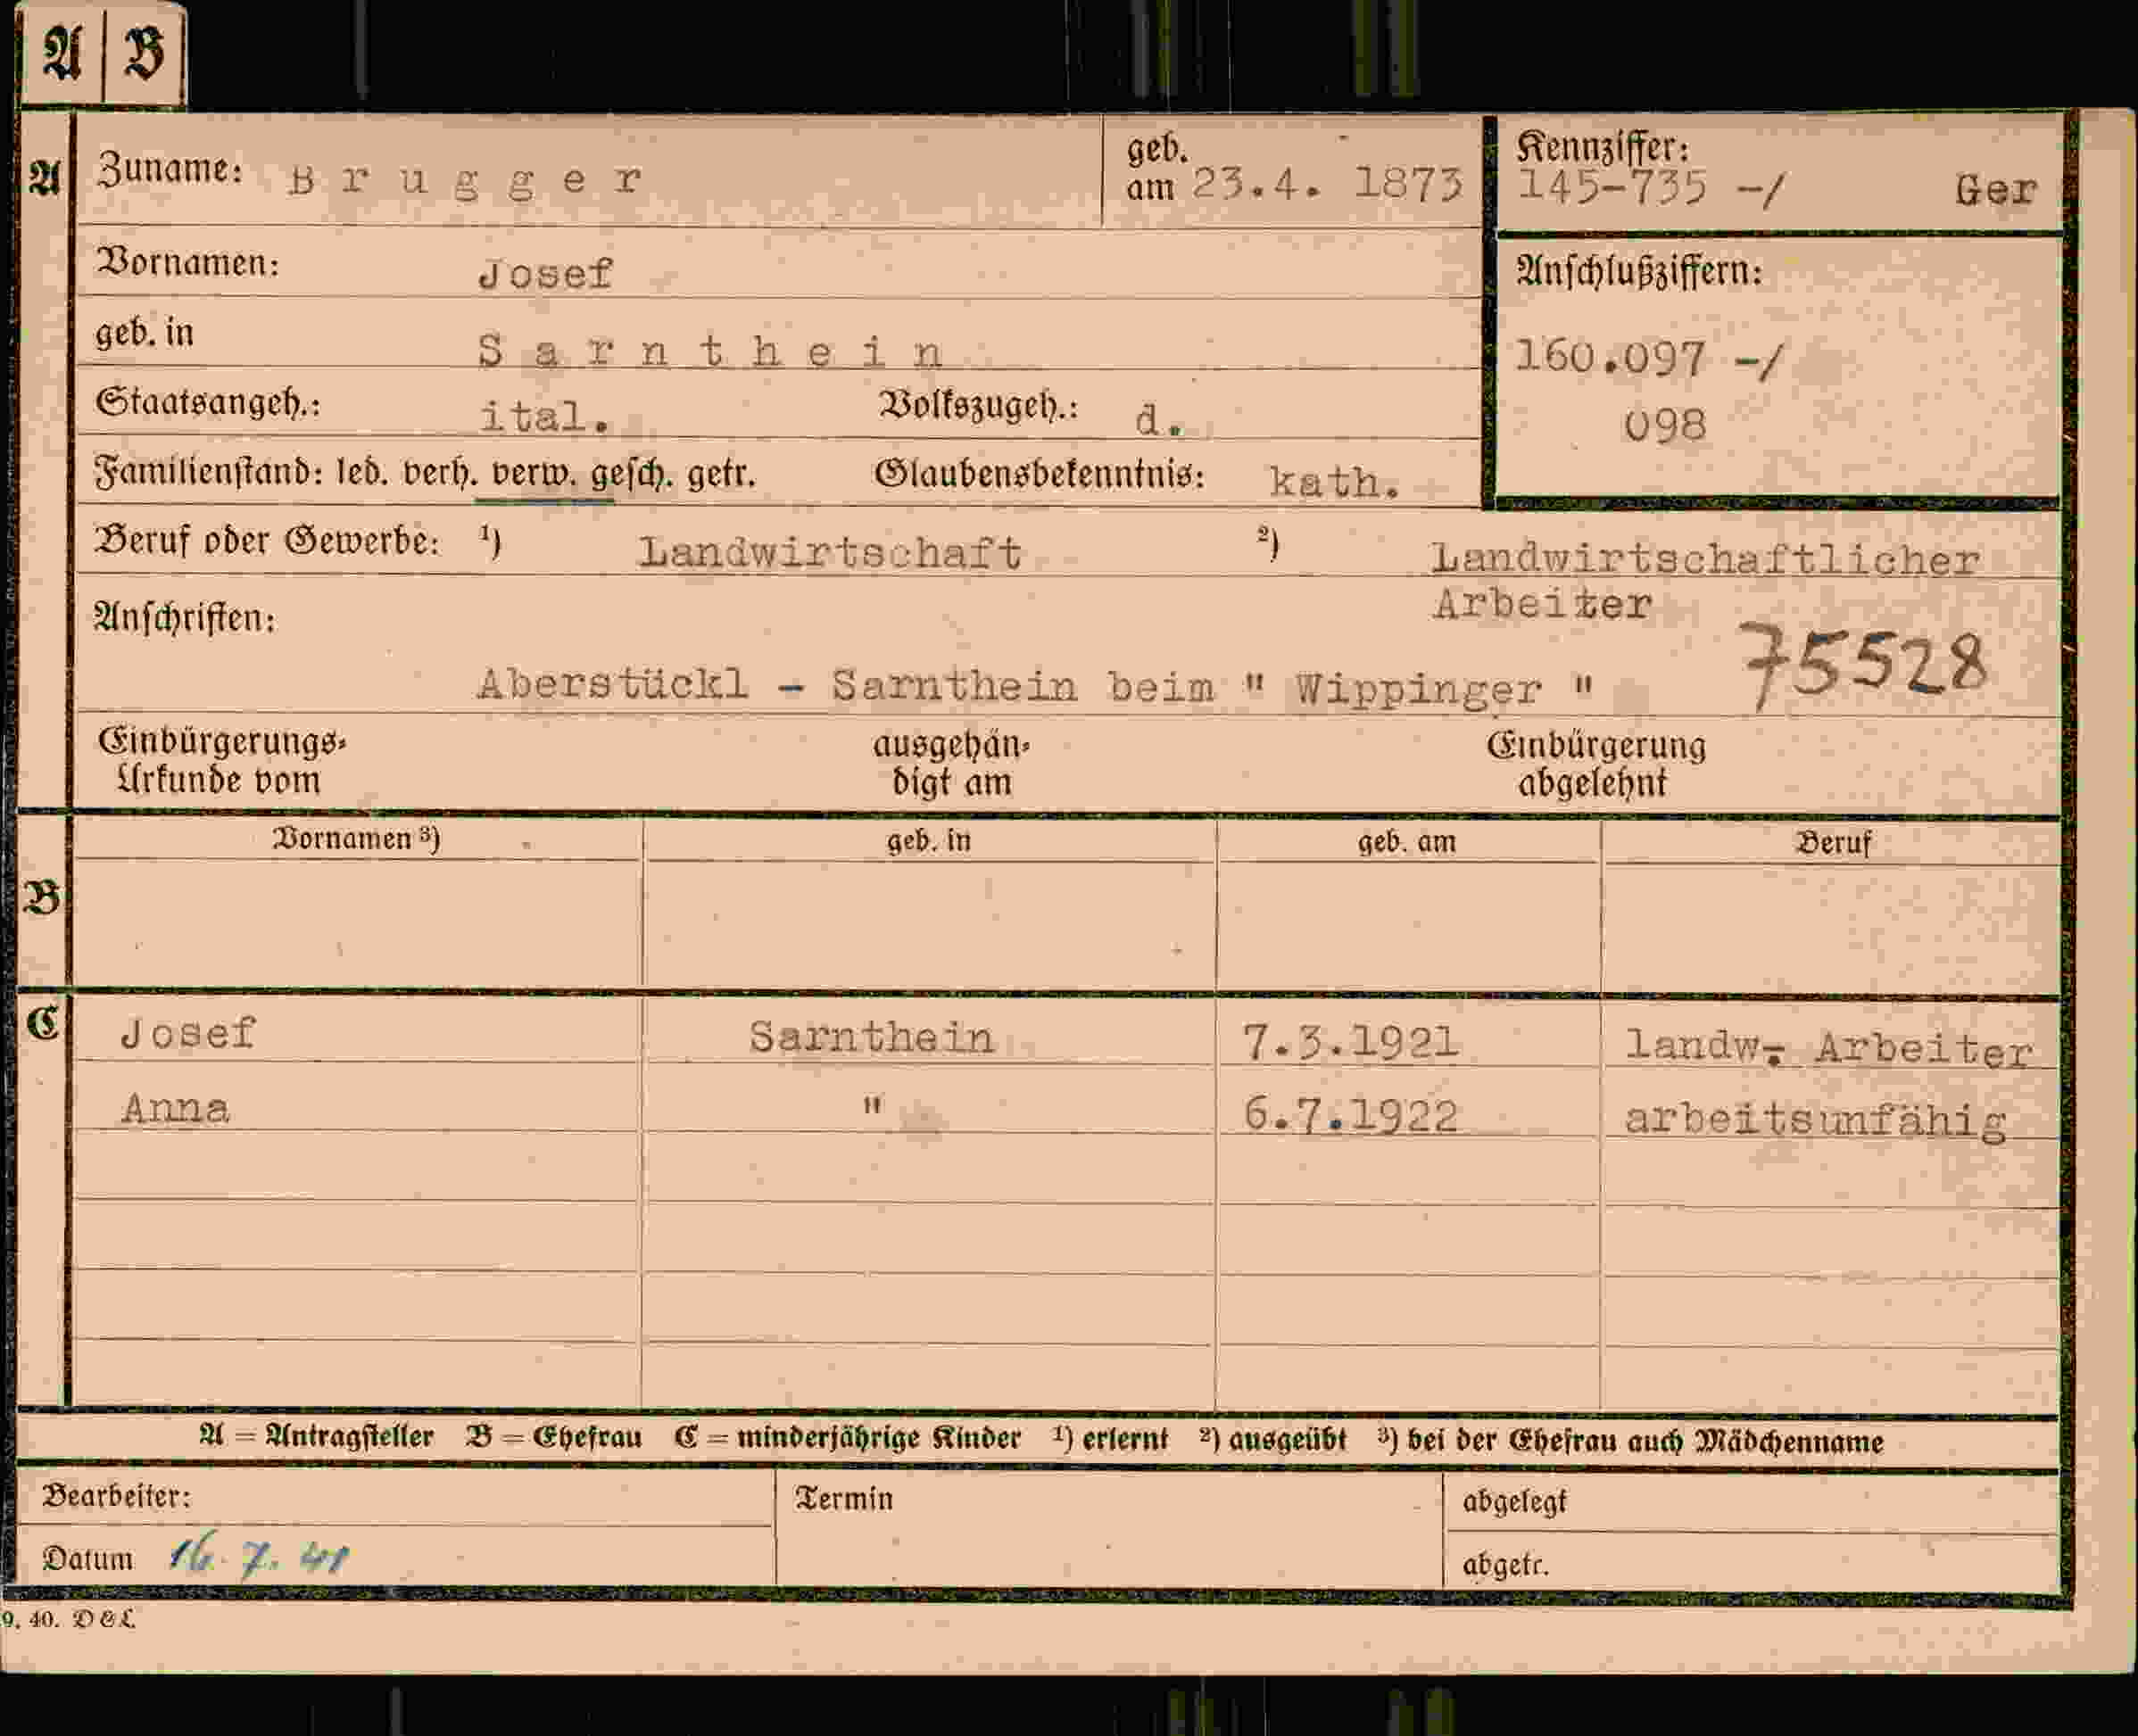 A B
A Zuname: Brugger geb. am 23.4. 1873 Kennziffer: 145-735 -/ Ger
Vornamen: Josef Anschlußziffern:
geb. in Sarnthein 160.097 -/
Staatsangeh.: ital. Volkszugeh.: d. 098
Familienstand: led. verh. verw. gesch. getr. Glaubensbekenntnis: kath.
Beruf oder Gewerbe: ¹) Landwirtschaft ²) Landwirtschaftlicher
Arbeiter
Anschriften:
75528
Aberstückl - Sarnthein beim " Wippinger "
Einbürgerungs- ausgehän- Einbürgerung
Urkunde vom digt am abgelehnt
Vornamen ³) geb. in geb. am Beruf
B
C Josef Sarnthein 7.3.1921 landw. Arbeiter
Anna " 6.7.1922 arbeitsunfähig
A = Antragsteller B = Ehefrau C = minderjährige Kinder ¹) erlernt ²) ausgeübt ³) bei der Ehefrau auch Mädchenname
Bearbeiter: Termin abgelegt
Datum 16.7.41 abgetr.
9. 40. D&L